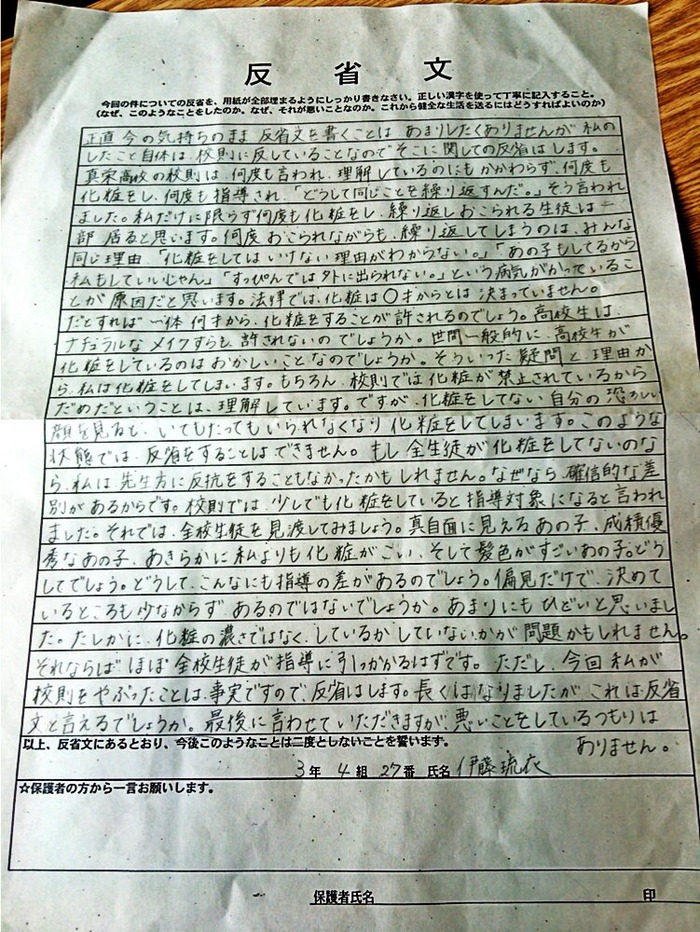 反省文
今回の件についての反省を、用紙が全部埋まるようにしっかり書きなさい。正しい漢字を使って丁寧に記入すること。
(なぜ、このようなことをしたのか。なぜ、それが悪いことなのか。これから健全な生活を送るにはどうすればよいのか)
正直 今の気持ちのまま 反省文を書くことは あまりしたくありませんが 私の
したこと自体は、校則に反していることなのでそこに関しての反省はします。
真栄高校の校則は、何度も言われ、理解しているのにもかかわらず、何度も
化粧をし、何度も指導され、「どうして同じことを繰り返すんだ。」そう言われ
ました。私だけに限らず何度も化粧をし、繰り返しおこられる生徒は一
部 居ると思います。何度おこられながらも、繰り返してしまうのは、みんな
同じ理由「化粧をしてはいけない理由がわからない。」「あの子もしてるから
私もしていいじゃん」「すっぴんでは外に出られない。」という病気がかっているこ
とが原因だと思います。法律では、化粧は〇才からとは 決まっていません。
だとすれば 一体 何才から、化粧をすることが許されるのでしょう。高校生は、
ナチュラルなメイクすらも、許されないのでしょうか。世間一般的に、高校生が
化粧をしているのはおかしいことなのでしょうか。そういった疑問と理由か
ら、私は化粧をしてしまいます。もちろん、校則では化粧が禁止されているから
だめだということは、理解しています。ですが、化粧をしてない自分の恐ろしい
顔を見ると、いてもたってもいられなくなり化粧をしてしまいます。このような
状態では、反省をすることはできません。もし全生徒が化粧をしてないのな
ら、私は先生方に反抗をすることもなかったかもしれません。なぜなら、確信的な差
別があるからです。校則では、少しでも化粧をしていると指導対象になると言われ
ました。それでは、全校生徒を見渡してみましょう。真自面に見えるあの子、成積優
秀なあの子、あきらかに私よりも化粧がこい、そして髪色がすごいあの子。どう
してでしょう。どうして、こんなにも指導の差があるのでしょう。偏見だけで、決めて
いるところも少ながらず あるのではないでしょうか。あまりにもひどいと思いまし
た。たしかに、化粧の濃さではなく、しているかしていないかが問題かもしれません。
それならば ほぼ 全校生徒が指導に引っかかるはずです。ただし、今回私が
校則をやぶったことは、事実ですので、反省はします。長くはなりましたが、これは反省
文と言えるでしょうか。最後に言わせていただきますが、悪いことをしているつもりは
ありません。
以上、反省文にあるとおり、今後このようなことは二度としないことを誓います。
3年 4組 27番 氏名 伊藤琉衣
☆保護者の方から一言お願いします。
保護者氏名 印